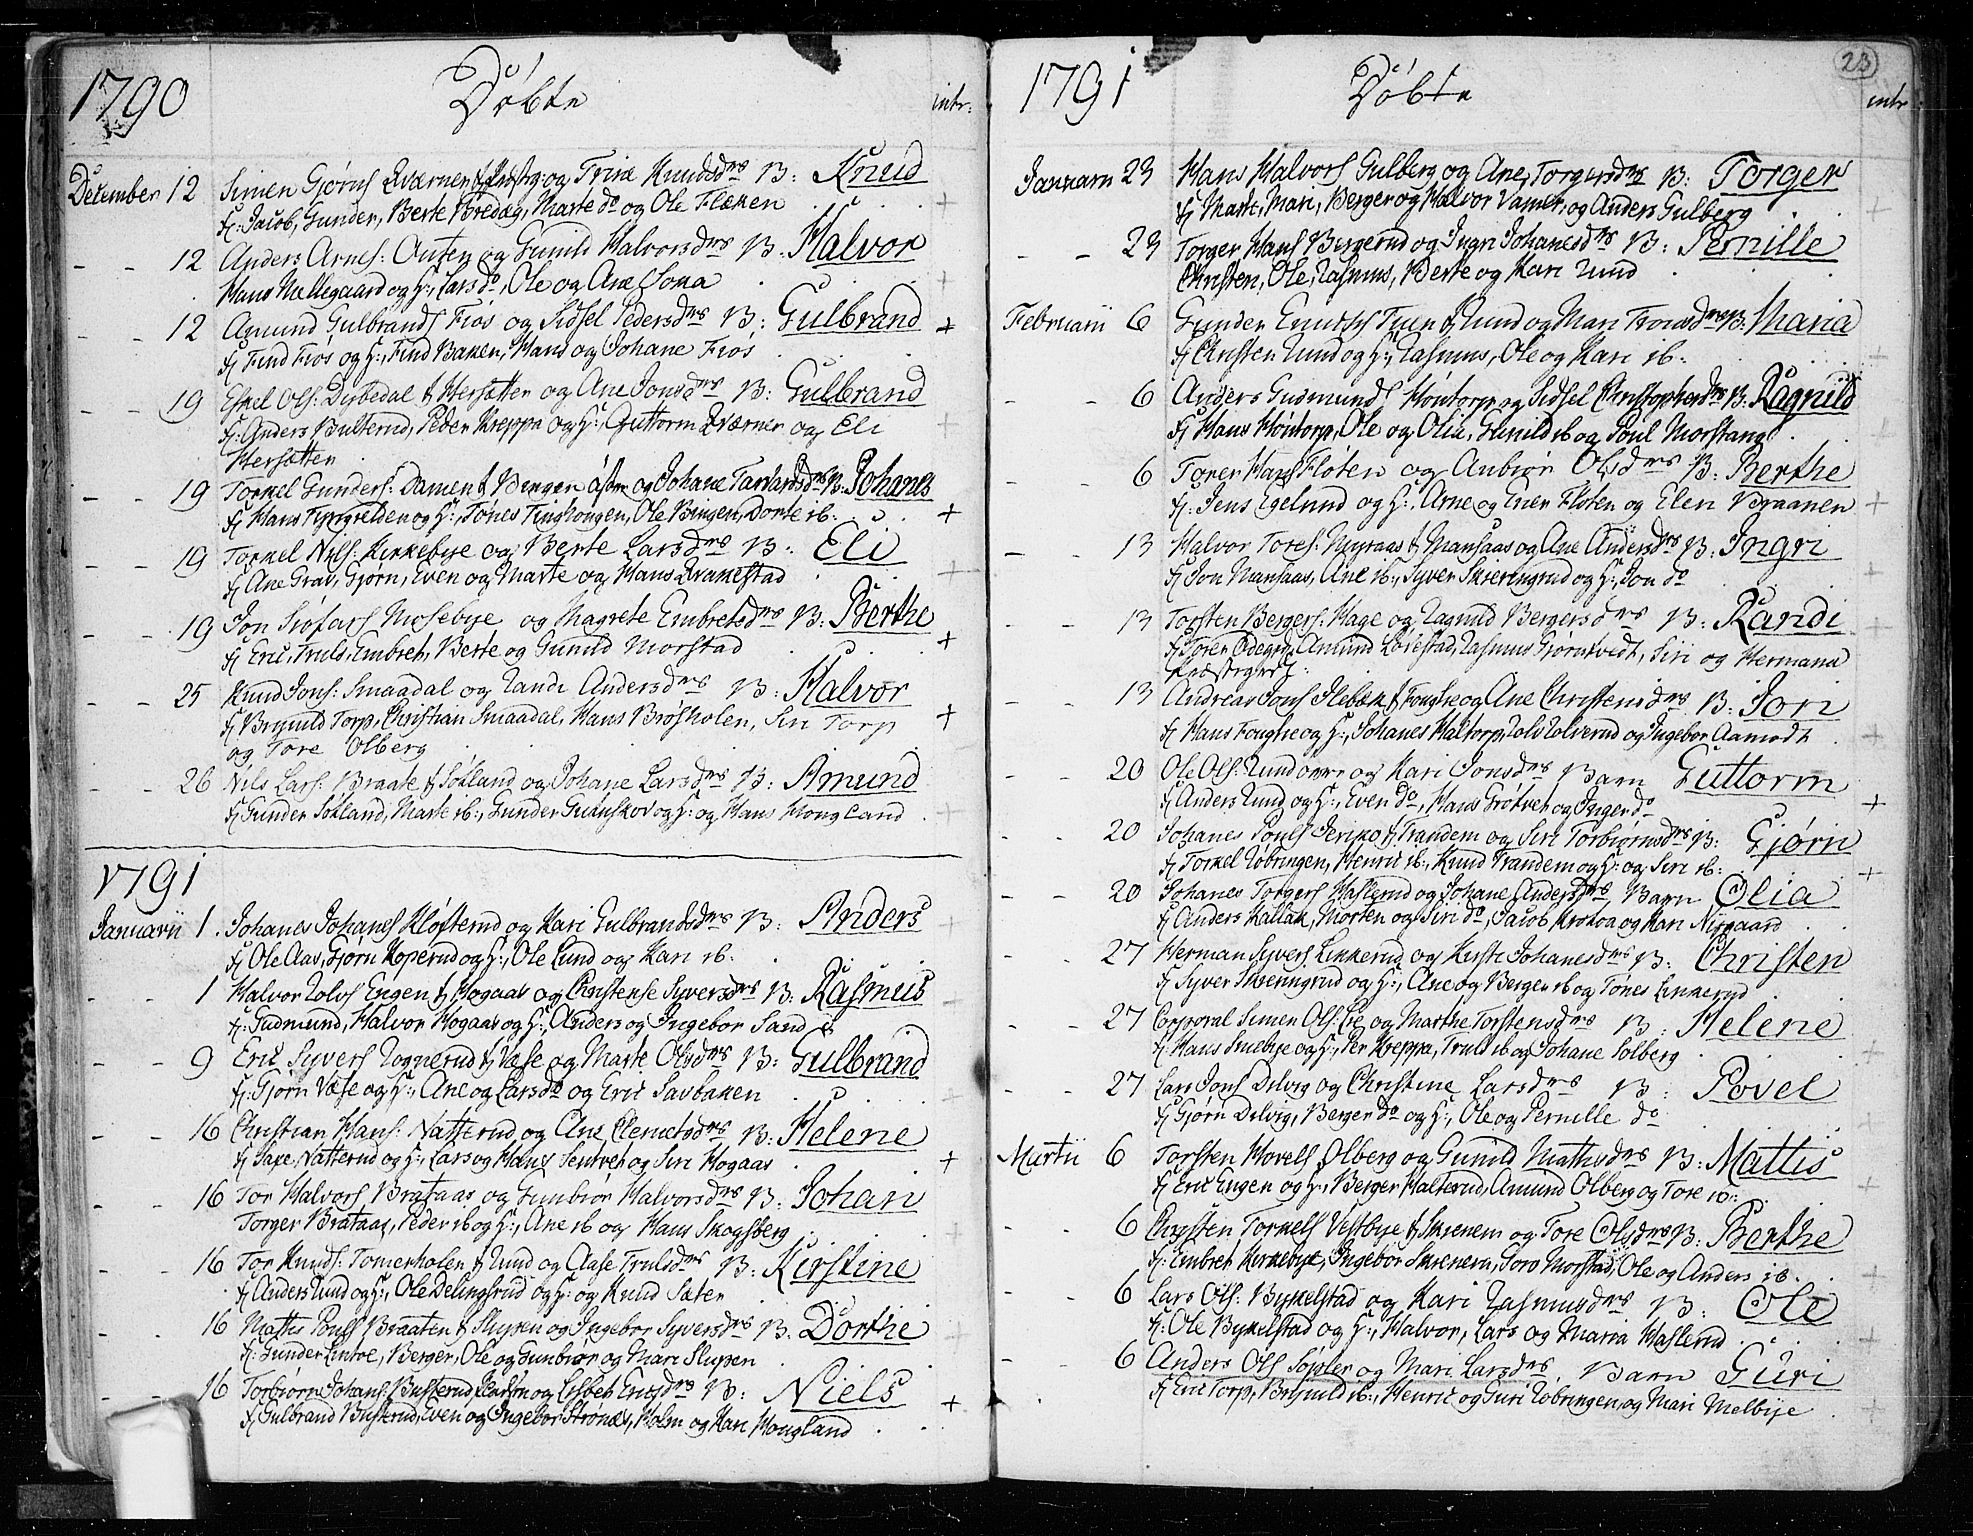 1790 Döbte intr:
December 12 Simen Gjørns Qværner og Trine Knudsdrs B: Knud
fJ: Jacob, Gunder, Berte Bredæg, Marte do og Ole Flæken
- - 12 Anders Arnes: Outen og Gunild Halvorsdrs B: Halvor
Hans Nellegaard og H:, Lars do, Ole og Ane Sona
- - 12 Amund Gulbrands Fiøs og Sidsel Pedersdrs B: Gulbrand +
fJ Find Fiøs og H:, Find Baken, Hans og Johane Fiøs
- - 19 Eskel Ols: Dybedal f Hersætten og Ane Jonsdrs B: Gulbrand
fJ: Anders Butterud, Peder Kreppa og H:, Guttorm Qværner og Eli
Hersætten
- - 19 Torkel Gunders: Damen f Bingen østre og Johane B: Johanes
fJ Hans og H:, Tønes Tinghougen, Ole Bingen, Dorte ib. +
- - 19 Torkel Nils: Kirkebye og Berte Larsdrs B: Eli
fJ Ane Grav, Gjørn, Even og Marte og Hans Qvakestad
- - 19 Jon Siøfars Mosebye og Magrete Embretsdrs B: Berthe
fJ Eric, Truls, Embret, Berte og Gunild Morstad +
- - 25 Knud Jons: Smaadal og Randi Andersdrs B: Halvor
fJ Brynild Torp, Christian Smaadal, Hans Brøsholen, Siri Torp +
og Tore Olberg
- - 26 Nils Lars: Braate f Søkland og Johane Larsdrs B: Amund
fJ Gunder Søkland, Marte ib:, Gunder og H: og Hans Hougland
1791
Januarii 1. Johanes Johanes Kløfterud og Kari Gulbrandsdrs B: Anders
fJ Ole Aas, Gjørn Koperud og H:, Ole Lund og Kari ib.
- - 1 Halvor Rolvs Engen f Hogaas og Christense Syversdrs B: Rasmus
fJ: Gudmund, Halvor Hogaas og H:, Anders og Ingebor Sand
- - 9 Eric Syvers Rognerud f Væse og Marte Olsdrs B: Gulbrand
fJ: Gjørn Væse og H:, Ane og Lars do og Eric Savbaken
- - 16 Christian Hans: Natterud og Ane Clemetsdrs B: Helene
fJ Saxe Natterud og H:, Lars og Hans Sentvet og Siri Hogaas +
- - 16 Tor Halvors Brataas og Gunbiør Halvorsdrs B: Johan
Torger Brataas, Peder ib og H:, Ane ib og Hans Skogsberg
- - 16 Tor Knuds: Tomerholen f Lund og Aase Trulsdrs B: Kirstine
fJ Anders Lund og H:, Ole Delingsrud og H: og Knud Sæter
- - 16 Mattis Pouls Braaten f Slupen og Ingebor Syversdrs B: Dorthe
fJ: Gunder Lintoe, Berger, Ole og Gunbiør og Mari Slupen
- - 16 Torbiørn Johans: Busterud og Lisbet Ericsdrs B: Niels
fJ Gulbrand Busterud, Even og Ingebor Strønæs, Holm og Kari Hougland +
1791 Döbte 23 intr
Januarii 23 Hans Halvors Gulberg og Ane Torgersdrs B: Torger
fJ Marte, Mari, Berger og Halvor Vamer, og Anders Gulberg
- - 23 Torger Hans Bergerud og Ingri Johanesdrs B: Pernille
Christen, Ole, Rasmus, Berte og Kari Rund
Februarii 6 Gunder Tuen f Rund og Mari B: Maria
fJ Christen Rund og H:, Rasmus, Ole og Kari ib.
- - 6 Anders Gudmunds Høntorp og Sidsel Christophersdrs B: Ragnild
fJ Hans Høntorp, Ole og Olia, Gunild ib og Poul Morstang
- - 6 Torer Hans Fløten og Anbiør Olsdrs B: Berthe
fJ Jens Egelund og H:, Arne og Ener Fløten og Elen Braanen
- - 13 Halvor Tores: Nyraas f Mansaas og Ane Andersdrs B: Ingri
fJ Jon Mansaas, Ane ib:, Syver Skieringrud og H:, Jon do
- - 13 Torsten Bergers: Hage og Ragnild Bergersdrs B: Randi
fJ Torer Ødegrd, Amund Løvestad, Rasmus Gjørntvedt, Siri og Hermana

- - 13 Andreas Jons Hebek f Foughe og Ane Christensdrs B: Jori
fJ Hans Foughe og H:, Johanes Haltorp, Rols Rolverud og Ingebor Aamodt
- - 20 Ole Ols: Rund øvre og Kari Jonsdrs Barn Guttorm
fJ Anders Rund og H:, Even do, Hans Grøtvet og Inger do +
- - 20 Johanes Pouls Jeriko f Trandem og Siri Torbiørnsdrs B: Gjørn
fJ Torkel Robringen, Henric ib., Knud Trandem og H: og Siri ib. +
- - 20 Johanes Torgers Haslerud og Johane Andersdrs, Barn Olia
fJ Anders Kallak, Morten og Siri do, Jacob Krokoa og Kari Nygaard
- - 27 Herman Syvers Linkerud og Kirsti Johanesdrs B: Christen
fJ Syver Skieringrud og H:, Ane og Berger ib og Tønes Linkerud
- - 27 Corporal Simen Ols: Lie og Marthe Torstensdrs B: Helene
fJ Hans Smebye og H:, Per Kreppa, Truls ib og Johane Solberg
- - 27 Lars Jons Delvig og Christine Larsdrs B: Povel
fJ Gjørn Delvig, Berger do og H:, Ole og Pernille do
Martii 6 Torsten Hovels Olberg og Gunild Mathisdrs B: Mattis
fJ Eric Engen og H:, Berger Halterud, Amund Olberg og Tore ib:
- - 6 Christen Torkels Vestbye f Skrenem og Tore Olsdrs B: Berthe
fJ: Embret Kirkebye, Ingebor Skrenem, Soro Morstad, Ole og Anders ib.
- - 6 Lars Ols: Bykelstad og Kari Rasmusdrs B: Ole
fJ: Ole Bykelstad og H:, Halvor, Lars og Maria Haslerud
- - 6 Anders Ols Søsler og Mari Larsdrs Barn Guri
fJ Eric Torp, Brynild ib:, Henric og Guri Robringen, og Mari Melbye